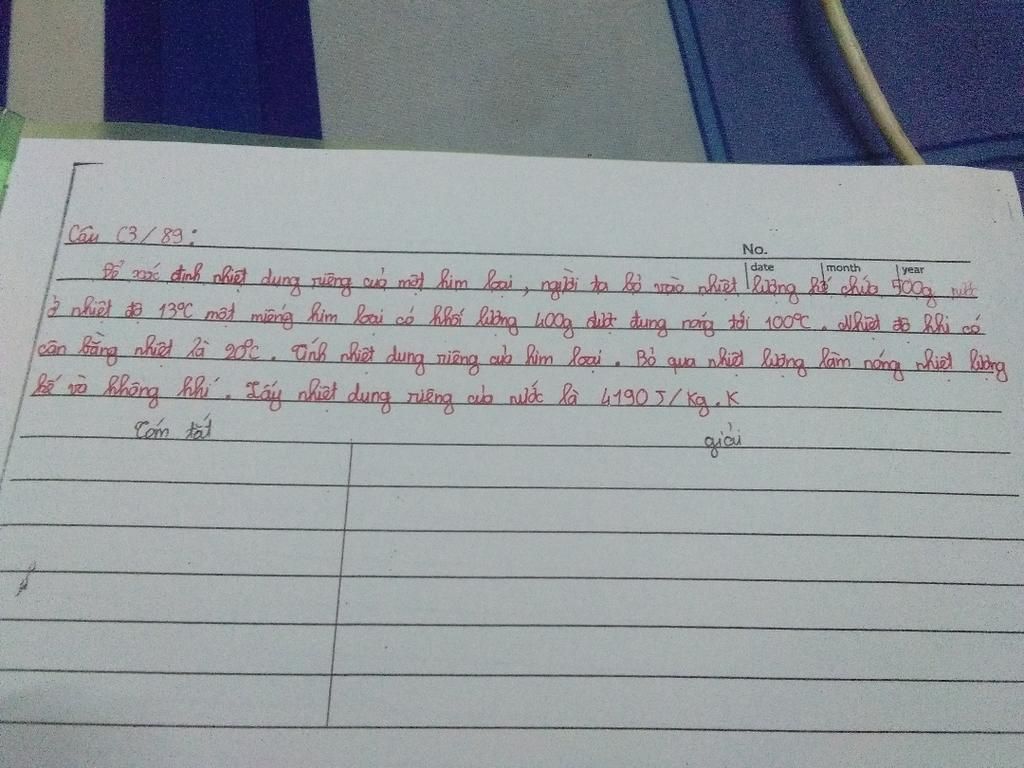 Câu C3/89:
No.
date month year
Để xác định nhiệt dung riêng của một kim loại, người ta bỏ vào nhiệt lượng kế chứa 500g nước
ở nhiệt độ 13°C một miếng kim loại có khối lượng 400g được đung nóng tới 100°C. Nhiệt độ khi có
cân bằng nhiệt là 20°C. Tính nhiệt dung riêng của kim loại. Bỏ qua nhiệt lượng làm nóng nhiệt lượng
kế và không khí. Lấy nhiệt dung riêng của nước là 4190J/Kg.K
Tóm tắt giải